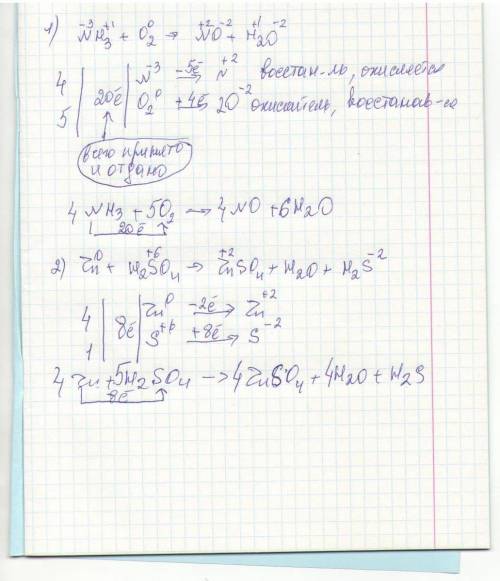 1) N⁻³H₃⁺¹ + O₂⁰ → N⁺²O⁻² + H₂⁺¹O⁻²
4 | 20ē | N⁻³ −5ē → N⁺² восстан-ль, окисляется
5 | O₂⁰ +4ē → 2O⁻² окислитель, восстанав-ся
всего принято
и отдано
4NH₃ + 5O₂ → 4NO + 6H₂O
20ē
2) Zn⁰ + H₂S⁺⁶O₄ → Zn⁺²SO₄ + H₂O + H₂S⁻²
4 | 8ē | Zn⁰ −2ē → Zn⁺²
1 | S⁺⁶ +8ē → S⁻²
4Zn + 5H₂SO₄ → 4ZnSO₄ + 4H₂O + H₂S
8ē